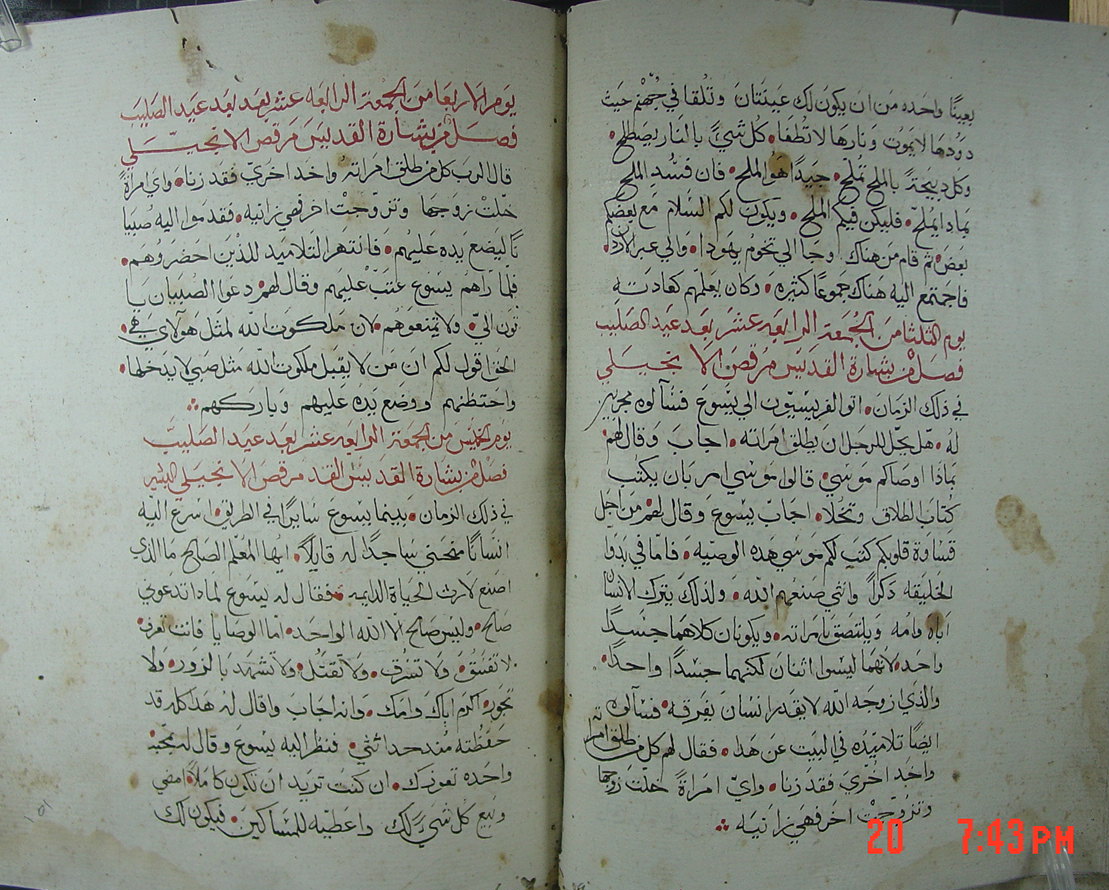 بعينًا واحده من ان يكون لك عينتان وتلقا في جهنم حيث
دودها لا يموت ونارها لا تطفا • كل شيءٍ بالنار يصطلح •
وكل ديبحة بالملح تملح • جيدًا هو الملح • فان فسد الملح
بماد ايملح • فليكن فيكم الملح • ويكون لكم السلام مع بعضكم
بعض • ثم قام من هناك وجا الي تخوم يهودا • والي عبر الاردن •
فاجتمع اليه هناك جموعًا كثيره • وكان يعلمهم كعادته
يوم الثلثا من الجمعه الرابعه عشر بعد عيد الصليب
فصل من بشارة القديس مرقص الانجيلي
في ذلك الزمان • اتوا الفريسيون الي يسوع فسالوه مجربين
له • هل يحل للرجل ان يطلق امراته • اجاب وقال لهم
بمادا اوصاكم موسي • قالوا موسي امر بان يكتب
كتاب الطلاق وتخلا • اجاب يسوع وقال لهم من اجل
قساوة قلوبكم كتب لكم موسي هده الوصيه • فاما في بدوا
الخليقه ذكرًا وانثي صنعهم الله • ولدلك يترك الانسان
اباه وامه ويلتصق بامراته • ويكونان كلاهما جسدًا
واحد • لانهما ليسوا اثنان لكنهما جسدًا واحدًا •
والذي ازوجه الله لا يقدر انسان يفرقه • فسالوه
ايضًا تلاميده في البيت عن هدا • فقال لهم كل من طلق امراته
واخد اخري فقد زنا • واي امراةً خلت زوجها
وتزوجت اخر فهي زانيه
يوم الاربعا من الجمعه الرابعه عشر بعد بعد عيد الصليب
فصل من بشارة القديس مرقص الانجيلي
قال الرب كل من طلق امراته واخد اخري فقد زنا • واي امراةً
خلت زوجها وتزوجت اخر فهي زانيه • فقدموا اليه صبيا
نًا ليضع يده عليهم • فانتهر التلاميد للذين احضروهم •
فلما راهم يسوع عتب عليهم وقال لهم دعوا الصبيان يا
تون اليّ • ولا تمنعوهم • لان ملكوت الله لمثل هولاي هي •
الحق اقول لكم ان من لا يقبل ملكوت الله مثل صبي لا يدخلها •
واحتظنهم ووضع يده عليهم وباركهم
يوم الخميس من الجمعه الرابعه عشر بعد عيد الصليب
فصل من بشارة القديس القد مرقص الانجيلي البشير
في ذلك الزمان • بينما يسوع سايرًا في الطريق • اسرع اليه
انسانًا منحني ساجدًا له قايلًا • ايها المعلم الصالح ما الذي
اصنع لارث الحياة الدايمه • فقال له يسوع لمادا تدعوني
صالح • وليس صالح الا الله الواحد • اما الوصايا فانت تعرف
لا تفسق • ولا تسرق • ولا تقتل • ولا تشهد بالزور • ولا
تجور • اكرم اباك وامك • وانه اجاب وقال له هدا كله قد
حفظته مند حداثتي • فنظر اليه يسوع وقال له بمحبه
واحده تعوزك • ان كنت تريد ان تكون كاملًا • امضي
وبيع كل شيءٍ لك واعطيه للمساكين • فيكون لك
20 7:43 PM